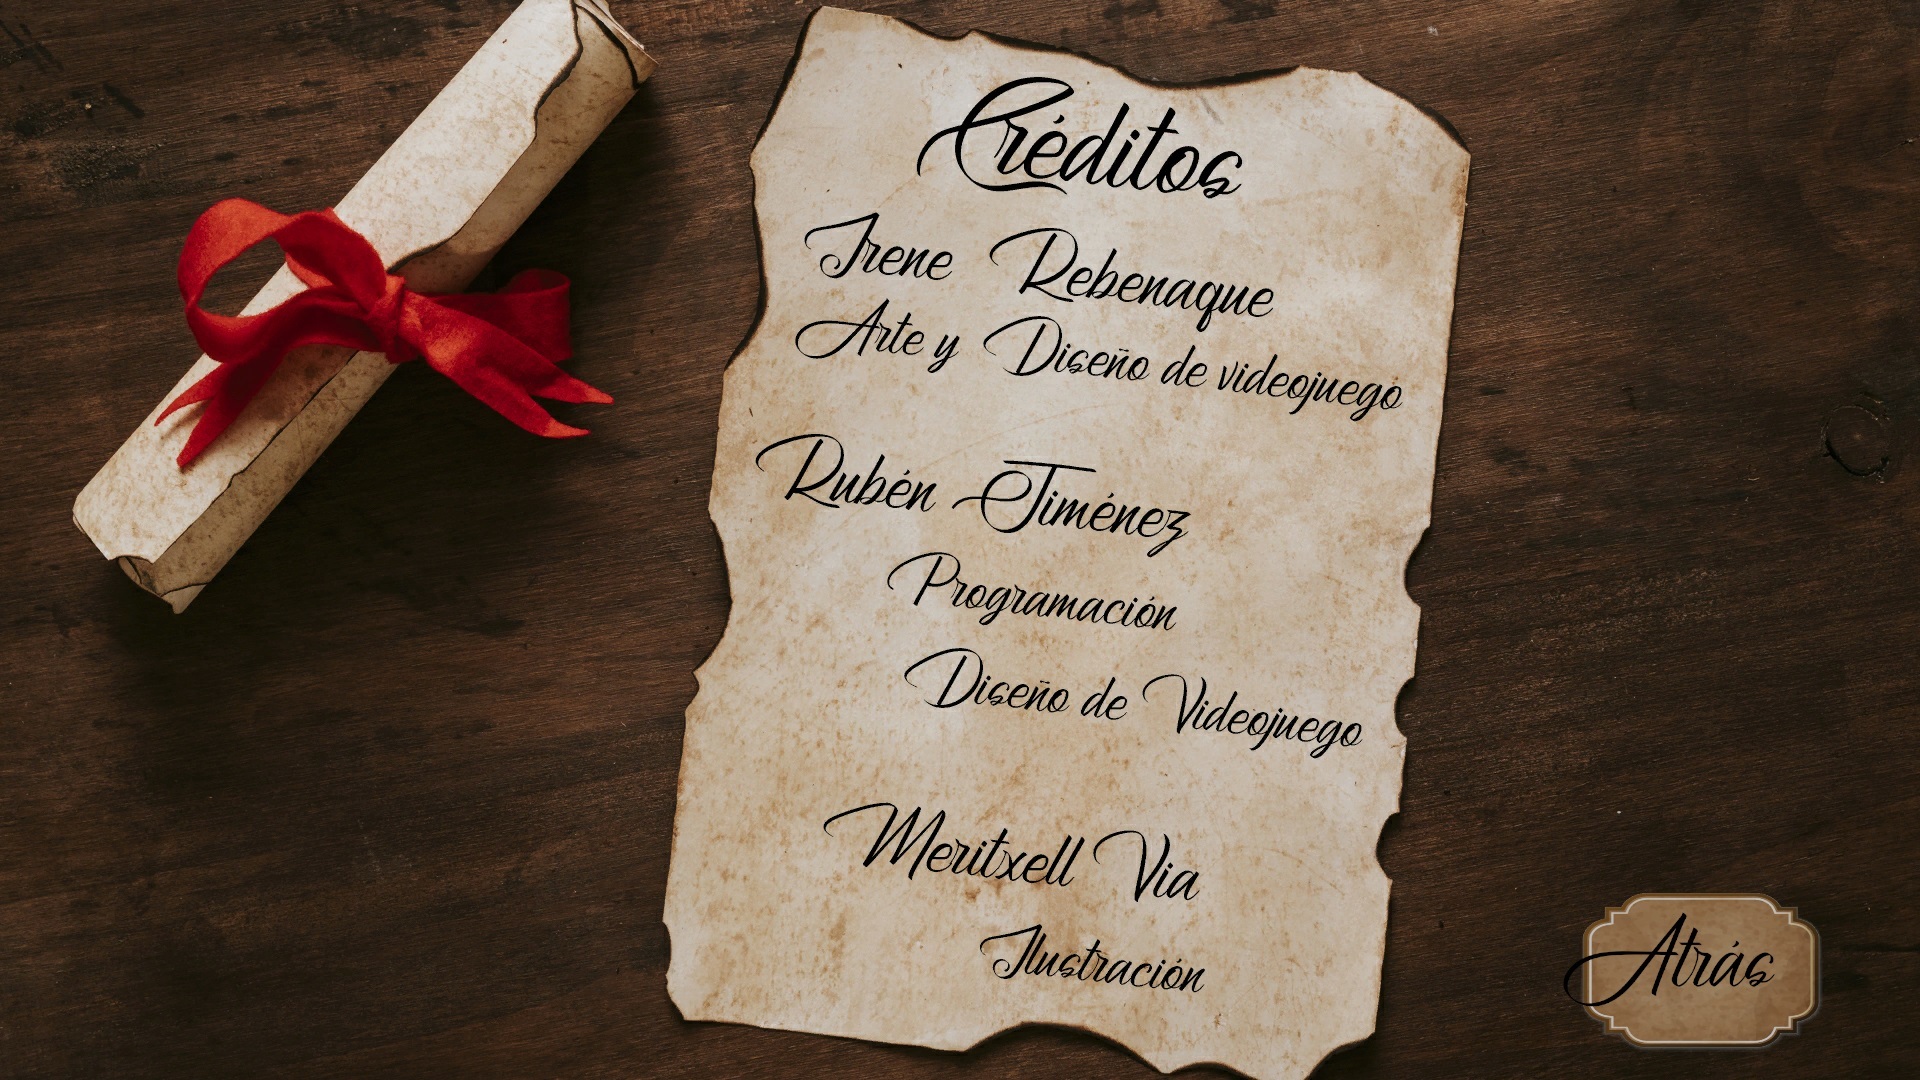 Créditos
Irene Rebenaque
Arte y Diseño de videojuego
Rubén Jiménez
Programación
Diseño de Videojuego
Meritxell Via
Ilustración
Atrás